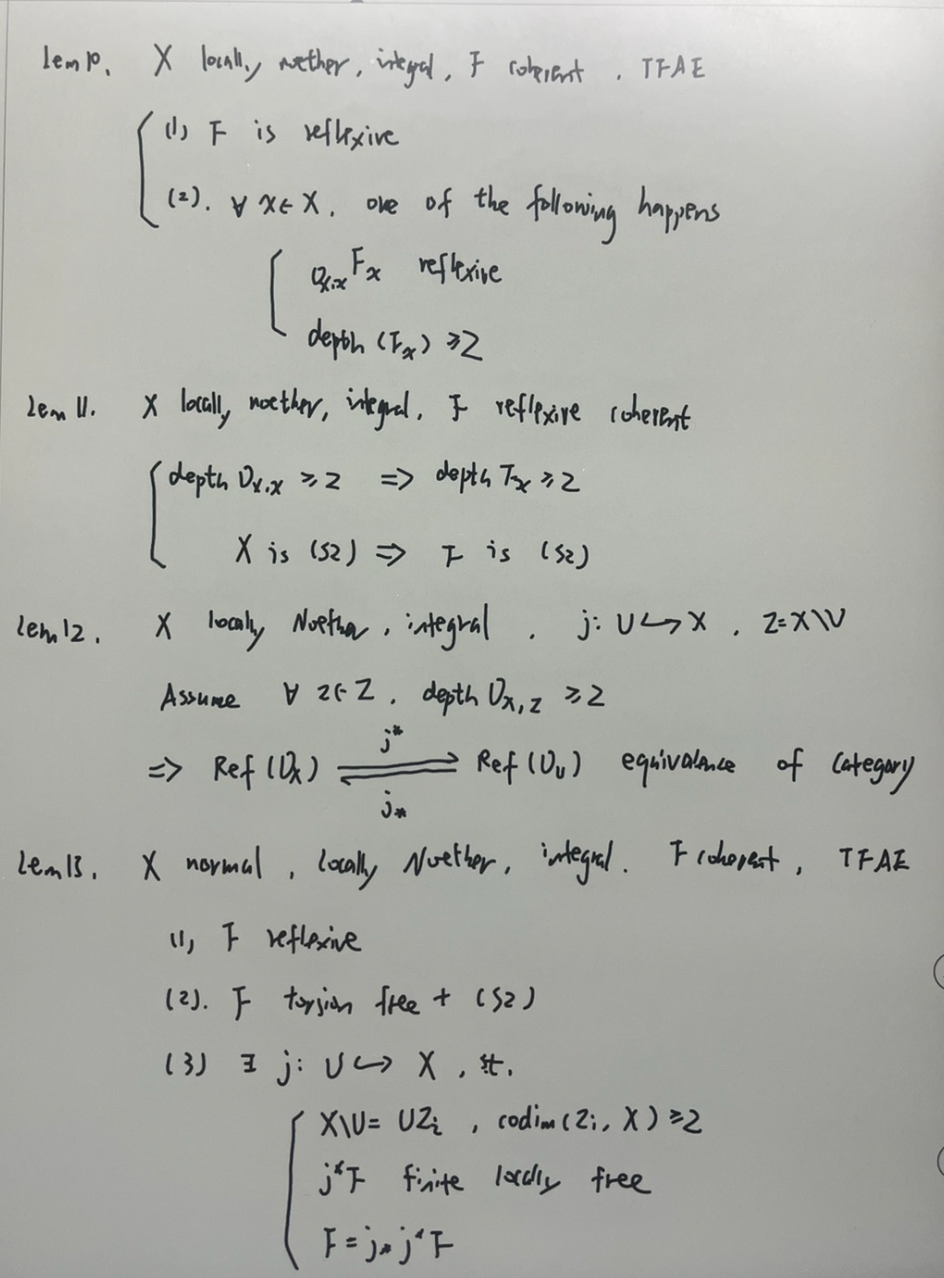 lem 10. X locally nother, integral, F coherent. TFAE
(1) F is reflexive
(2). ∀ x∈X. one of the following happens
O_{X,x} F_x reflexive
depth (F_x) ≥2
Lem 11. X locally noether, integral, F reflexive coherent
depth O_{X,x} ≥2 => depth F_x ≥2
X is (S2) => F is (S2)
lem 12. X locally Noether, integral. j: U↪X. Z=X\U
Assume ∀ z∈Z. depth O_{X,z} ≥2
j*
=> Ref(O_X) ⇌ Ref(O_U) equivalence of category
j_*
lem 13. X normal, locally Noether, integral. F coherent, TFAE
(1) F reflexive
(2). F torsion free + (S2)
(3) ∃ j: U↪X, st.
X\U = ∪Z_i, codim(Z_i, X) ≥2
j*F finite locally free
F = j_* j*F